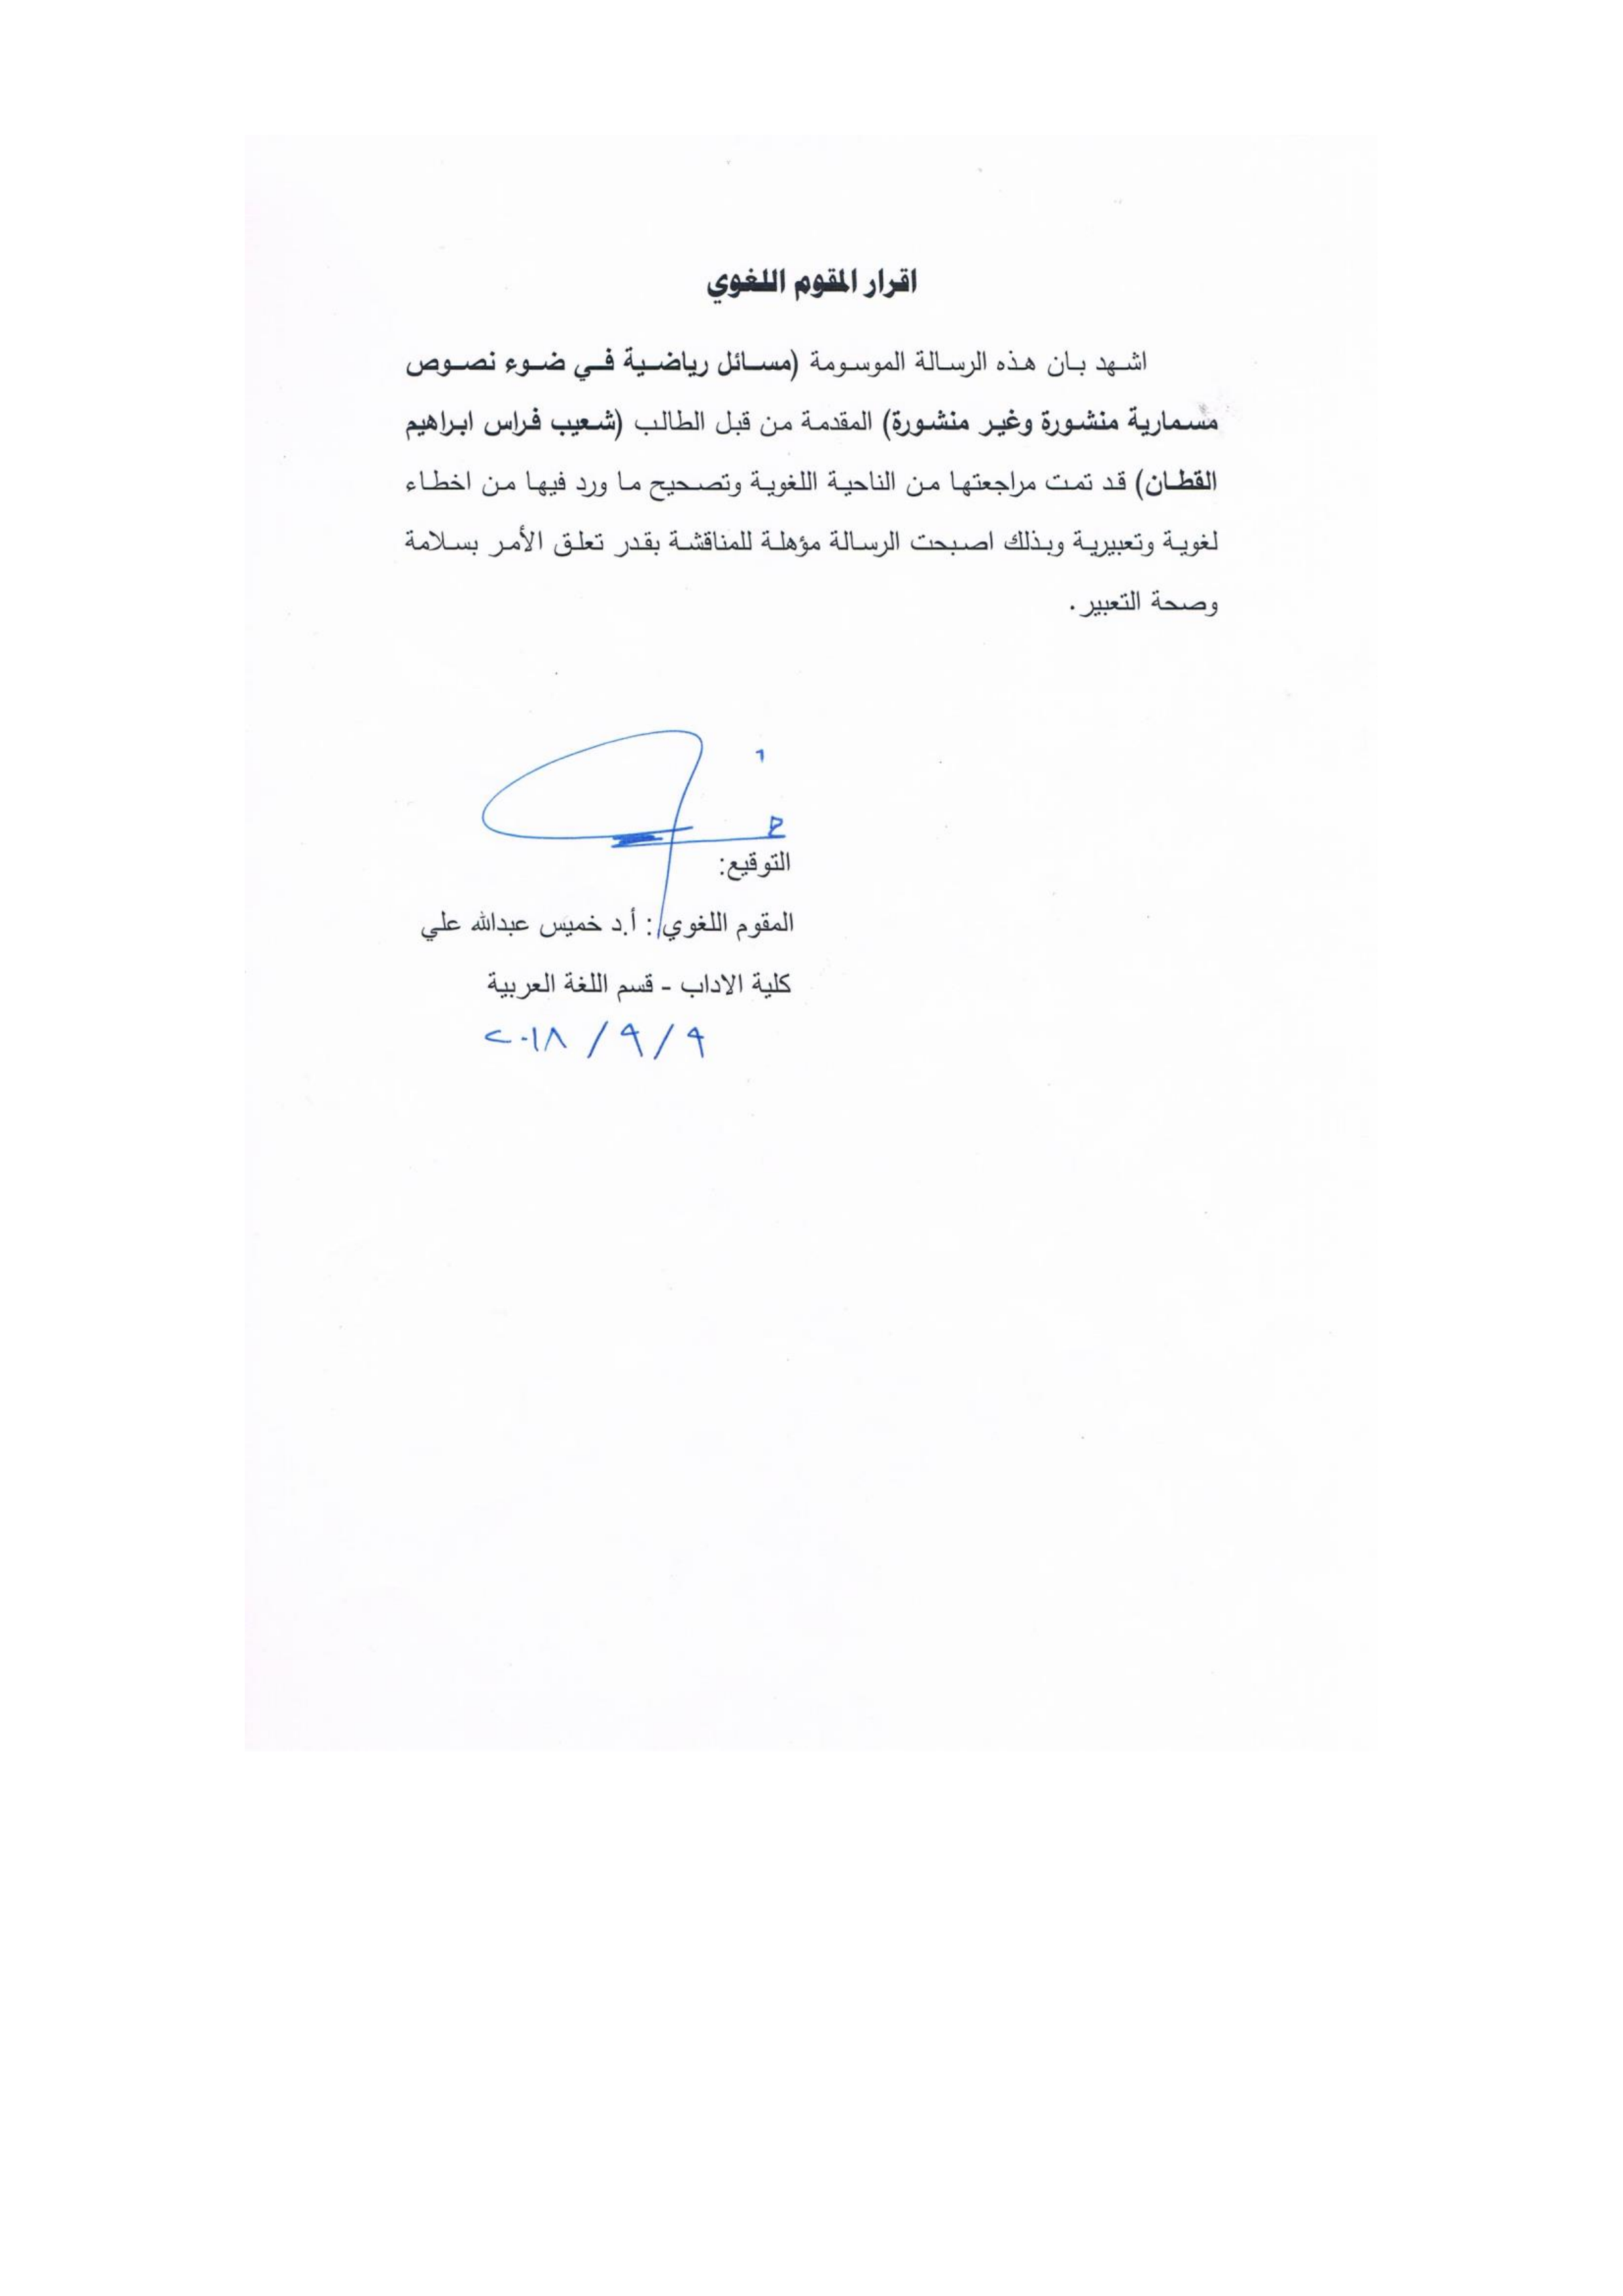 اقرار المقوم اللغوي
اشهد بان هذه الرسالة الموسومة (مسائل رياضية في ضوء نصوص
مسمارية منشورة وغير منشورة) المقدمة من قبل الطالب (شعيب فراس ابراهيم
القطان) قد تمت مراجعتها من الناحية اللغوية وتصحيح ما ورد فيها من اخطاء
لغوية وتعبيرية وبذلك اصبحت الرسالة مؤهلة للمناقشة بقدر تعلق الأمر بسلامة
وصحة التعبير.
التوقيع:
المقوم اللغوي: أ.د خميس عبدالله علي
كلية الاداب - قسم اللغة العربية
٩ / ٩ / ٢٠١٨